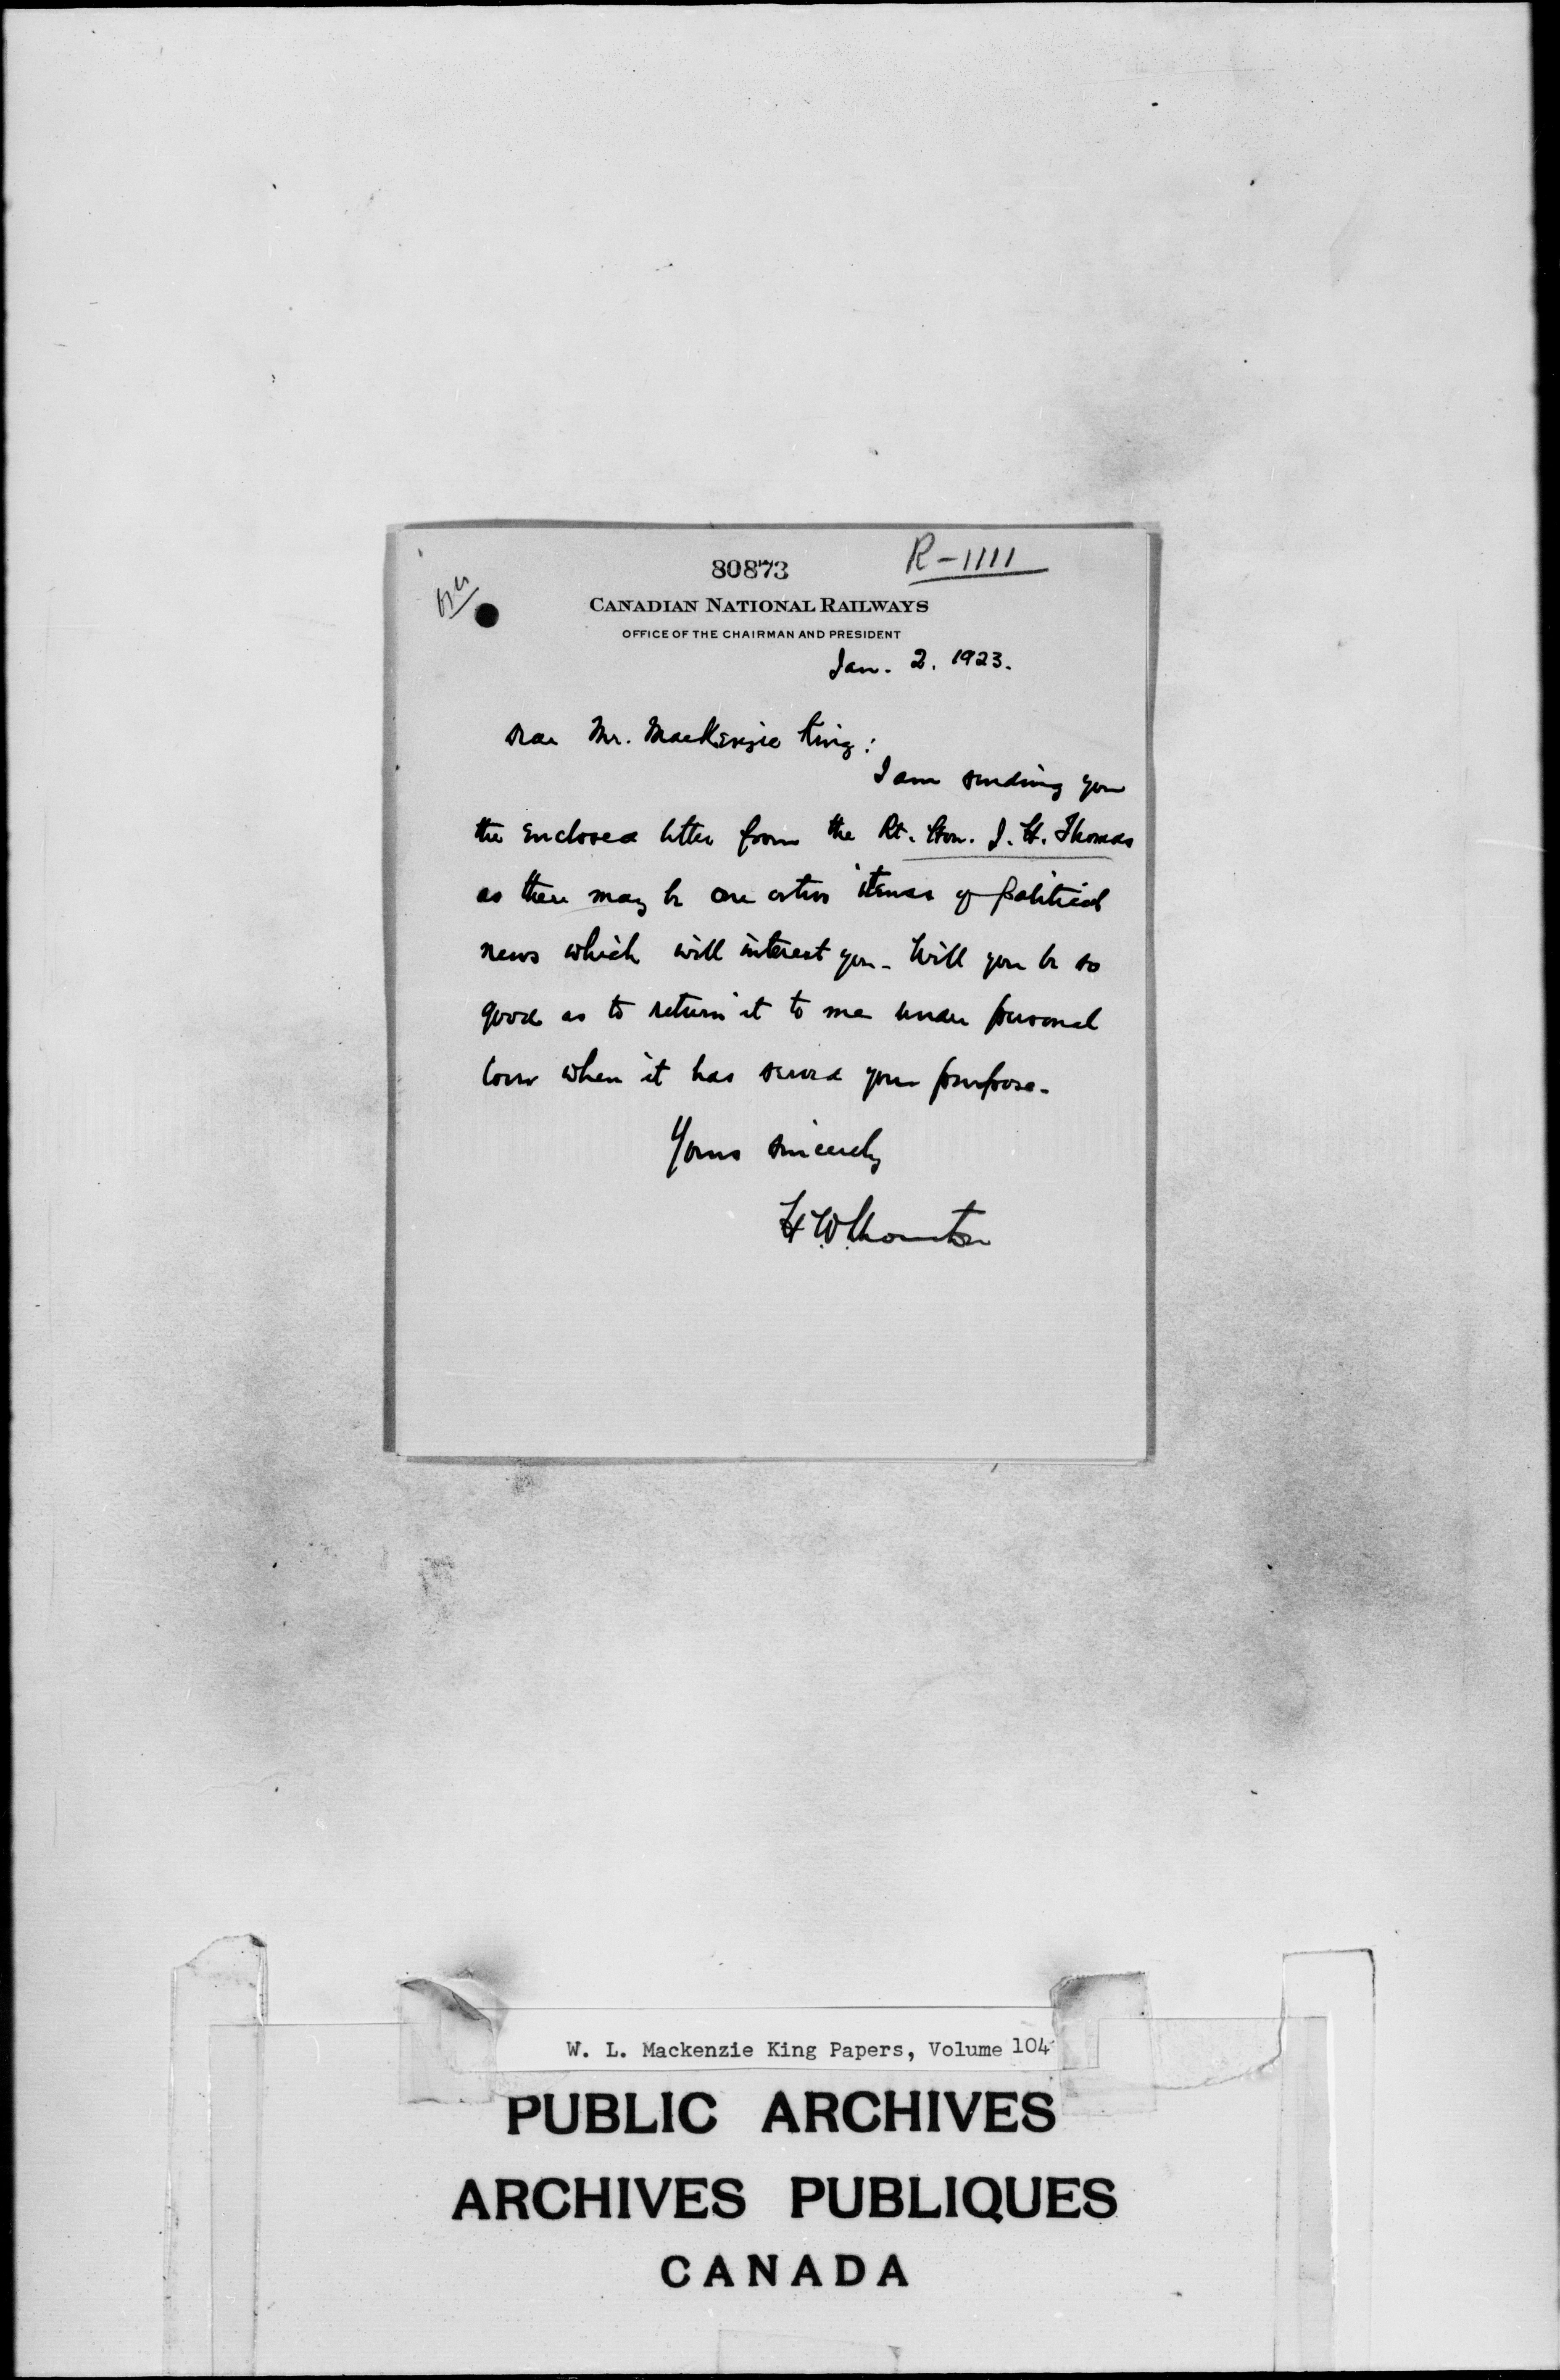 80873
R-1111
CANADIAN NATIONAL RAILWAYS
OFFICE OF THE CHAIRMAN AND PRESIDENT
Jan. 2. 1923.
Dear Mr. MacKenzie King:
I am sending you
the enclosed letter from the Rt. Hon. J. H. Thomas
as there may be one or two items of political
news which will interest you. Will you be so
good as to return it to me under personal
cover when it has served your purpose.
Yours sincerely
H.W. Thornton
W. L. Mackenzie King Papers, Volume 104
PUBLIC ARCHIVES
ARCHIVES PUBLIQUES
CANADA